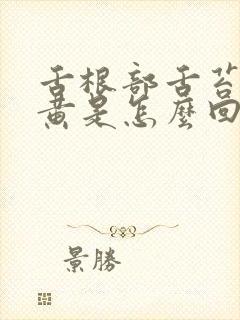 舌根部舌苔
黄是怎麼回
景勝